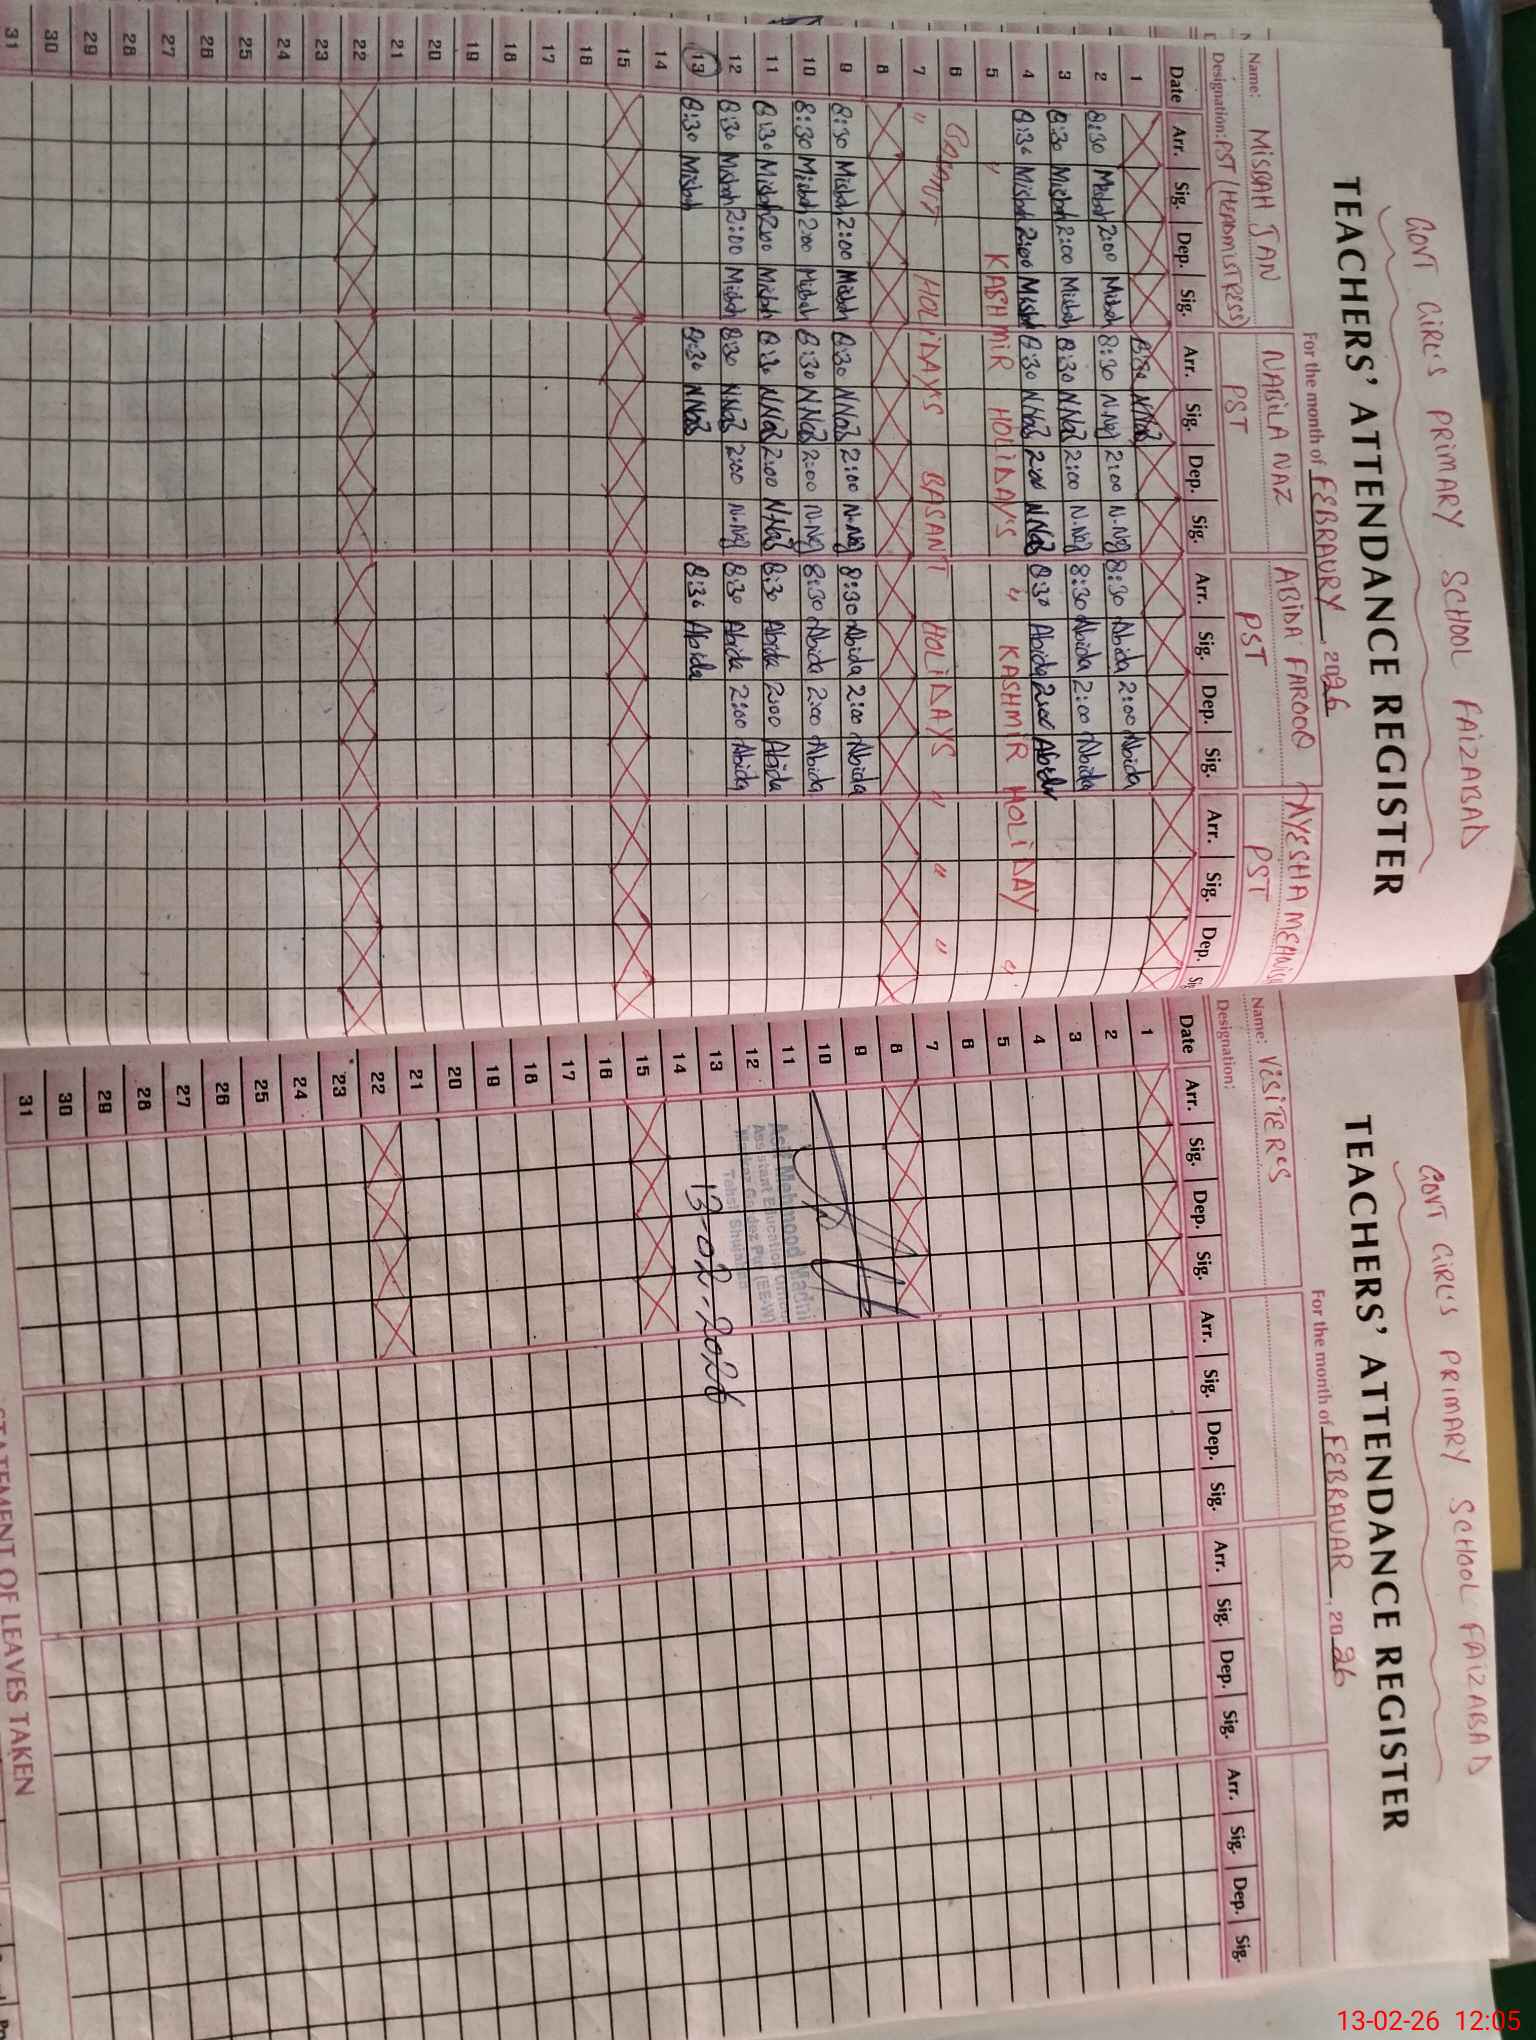 GOVT GIRL'S PRIMARY SCHOOL FAIZABAD
TEACHERS' ATTENDANCE REGISTER
For the month of FEBRAURY, 2026
Name: MISBAH JAN NABILA NAZ ABIDA FAROOQ AYESHA
Designation: PST (HEADMISTRESS) PST PST PST
Date Arr. Sig. Dep. Sig. Arr. Sig. Dep. Sig. Arr. Sig. Dep. Sig. Arr. Sig. Dep.
1 8:30 NNaz
2 8:30 Misbah 2:00 Misbah 8:30 N.Naz 2:00 N.Naz 8:30 Abida 2:00 Abida
3 8:30 Misbah 2:00 Misbah 8:30 NNaz 2:00 N.Naz 8:30 Abida 2:00 Abida
4 8:30 Misbah 2:00 Misbah 8:30 NNaz 2:00 NNaz 8:30 Abida 2:00 Abida
5 " KASHMIR HOLIDAY'S " KASHMIR HOLIDAY "
6
7 " HOLIDAYS BASANT HOLIDAYS " " "
8
9 8:30 Misbah 2:00 Misbah 8:30 NNaz 2:00 N.Naz 8:30 Abida 2:00 Abida
10 8:30 Misbah 2:00 Misbah 8:30 NNaz 2:00 N.Naz 8:30 Abida 2:00 Abida
11 8:30 Misbah 2:00 Misbah 8:30 NNaz 2:00 NNaz 8:30 Abida 2:00 Abida
12 8:30 Misbah 2:00 Misbah 8:30 NNaz 2:00 N.Naz 8:30 Abida 2:00 Abida
13 8:30 Misbah 8:30 NNaz 8:30 Abida
14
15
16
17
18
19
20
21
22
23
24
25
26
27
28
29
30
31
GOVT GIRL'S PRIMARY SCHOOL FAIZABAD
TEACHERS' ATTENDANCE REGISTER
For the month of FEBRAUAR, 2026
Name: VISITER'S
Designation:
Date Arr. Sig. Dep. Sig. Arr. Sig. Dep. Sig. Arr. Sig. Dep. Sig. Arr. Sig. Dep. Sig.
1
2
3
4
5
6
7
8
9
10
11 Mehmood
12 Assistant Education
13 13-02-2026
14
15
16
17
18
19
20
21
22
23
24
25
26
27
28
29
30
31
STATEMENT OF LEAVES TAKEN
13-02-26 12:05